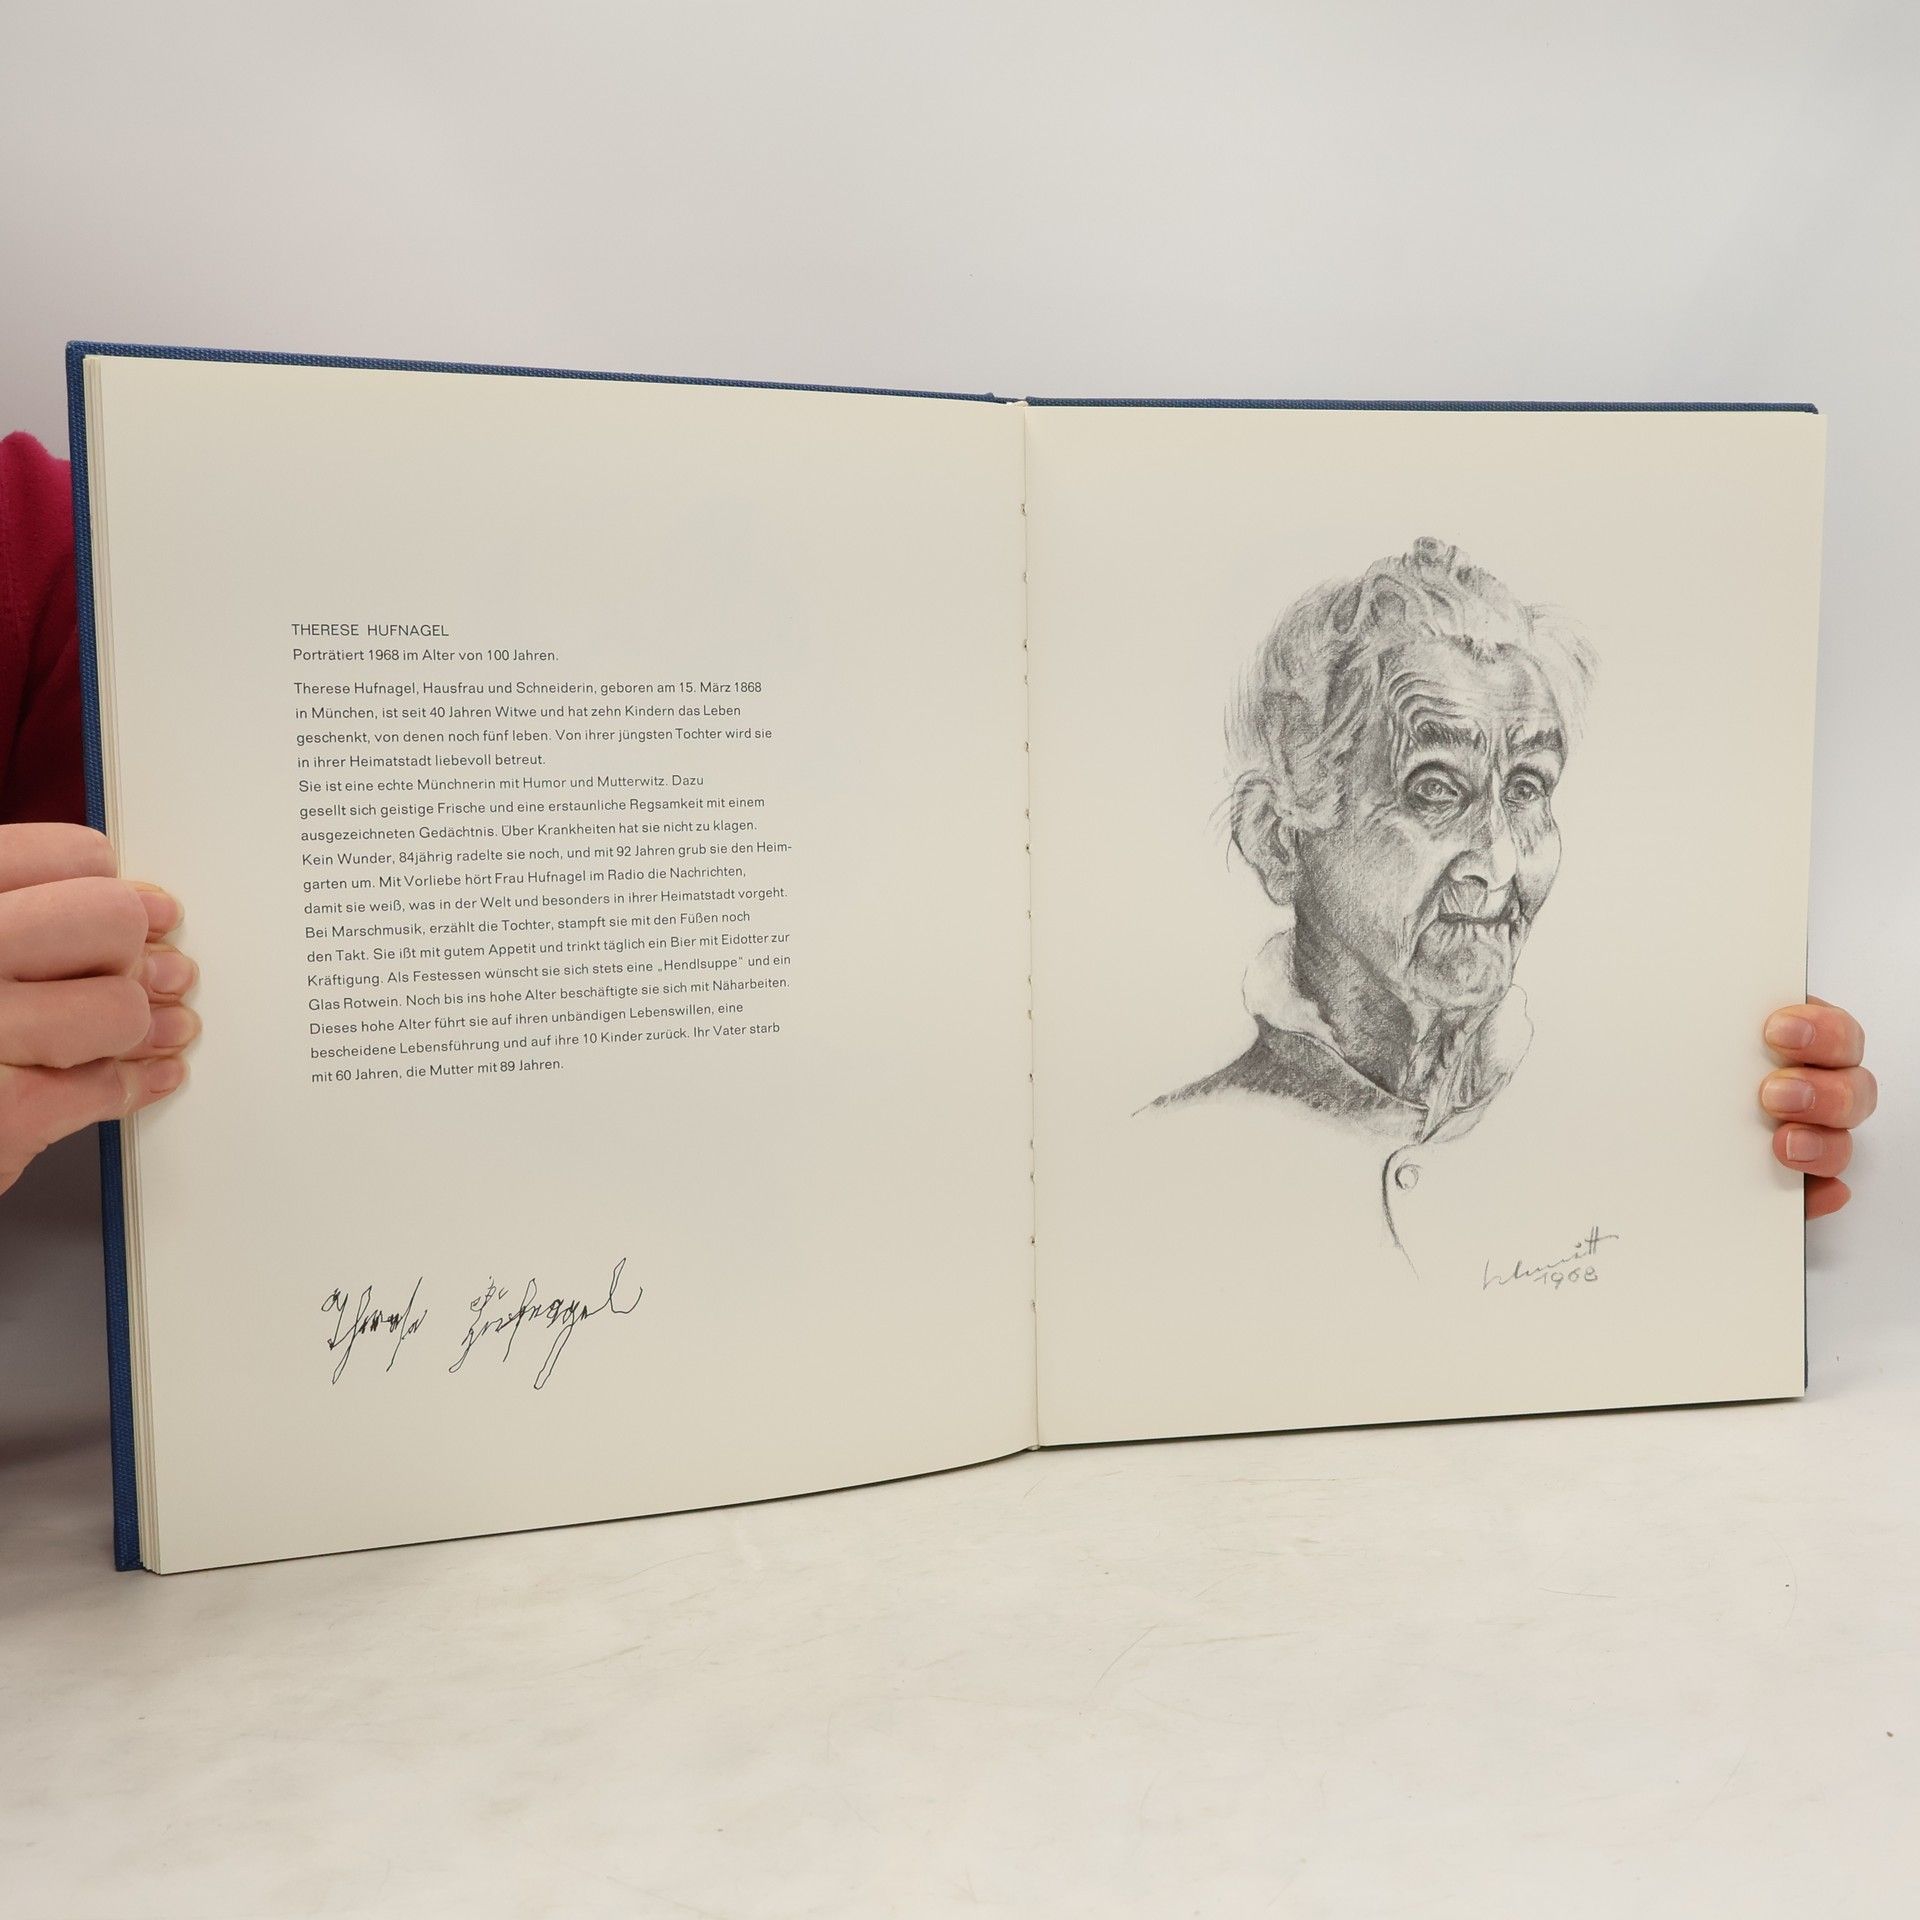 THERESE HUFNAGEL
Porträtiert 1968 im Alter von 100 Jahren.
Therese Hufnagel, Hausfrau und Schneiderin, geboren am 15. März 1868
in München, ist seit 40 Jahren Witwe und hat zehn Kindern das Leben
geschenkt, von denen noch fünf leben. Von ihrer jüngsten Tochter wird sie
in ihrer Heimatstadt liebevoll betreut.
Sie ist eine echte Münchnerin mit Humor und Mutterwitz. Dazu
gesellt sich geistige Frische und eine erstaunliche Regsamkeit mit einem
ausgezeichneten Gedächtnis. Über Krankheiten hat sie nicht zu klagen.
Kein Wunder, 84jährig radelte sie noch, und mit 92 Jahren grub sie den Heim-
garten um. Mit Vorliebe hört Frau Hufnagel im Radio die Nachrichten,
damit sie weiß, was in der Welt und besonders in ihrer Heimatstadt vorgeht.
Bei Marschmusik, erzählt die Tochter, stampft sie mit den Füßen noch
den Takt. Sie ißt mit gutem Appetit und trinkt täglich ein Bier mit Eidotter zur
Kräftigung. Als Festessen wünscht sie sich stets eine „Hendlsuppe" und ein
Glas Rotwein. Noch bis ins hohe Alter beschäftigte sie sich mit Näharbeiten.
Dieses hohe Alter führt sie auf ihren unbändigen Lebenswillen, eine
bescheidene Lebensführung und auf ihre 10 Kinder zurück. Ihr Vater starb
mit 60 Jahren, die Mutter mit 89 Jahren.
Therese Hufnagel
Schmitt
1968